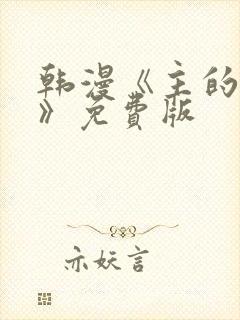 韩漫《主的
》免费版
亦妖言